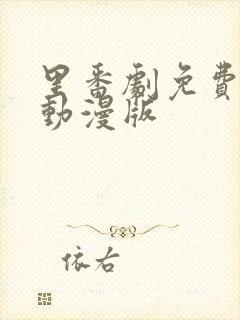 里番劇免費
動漫版
依右